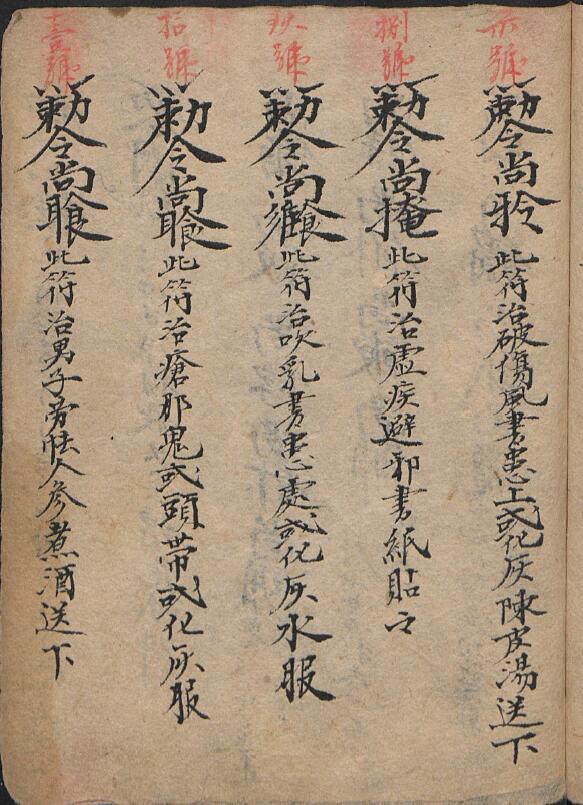 號
勅令尚 此符治破傷風書患上或化灰陳皮湯送下
捌號
勅令尚掩 此符治虚疾避邪書紙貼之
玖號
勅令尚 此符治吹乳書患處或化灰水服
拾號
勅令尚 此符治瘡邪鬼或頭帶或化灰服
壹號
勅令尚 此符治男子劳怯人參煮酒送下